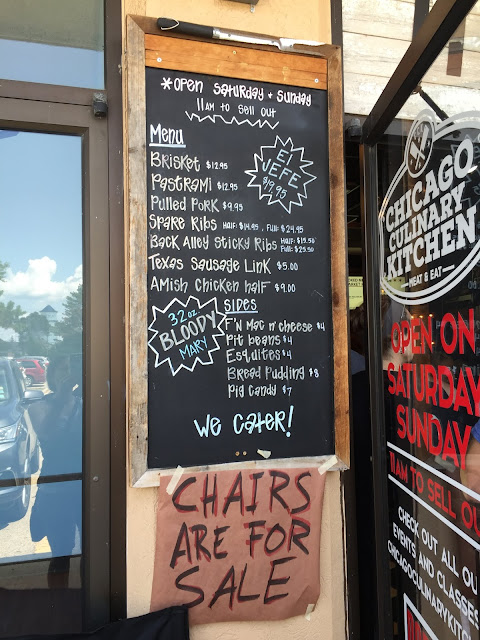 *Open Saturday + Sunday
11am to sell out
Menu
Brisket $12.95
Pastrami $12.95
Pulled Pork $9.95
Spare Ribs Half: $14.95, Full: $24.95
Back Alley Sticky Ribs Half: $15.50
Full: $25.50
Texas Sausage Link $5.00
Amish Chicken half $9.00
El
Jefe
$19.95
32 oz
Bloody
Mary
Sides
F'n Mac n' cheese $4
Pit beans $4
Esquites $4
Bread Pudding $8
Pig Candy $7
We Cater!
CHAIRS
ARE FOR
SALE
CHICAGO
CULINARY
KITCHEN
MEAT & EAT
OPEN ON
SATURDAY
SUNDAY
11AM TO SELL OU
CHECK OUT ALL OU
EVENTS AND CLASSES
CHICAGOCULINARYKIT